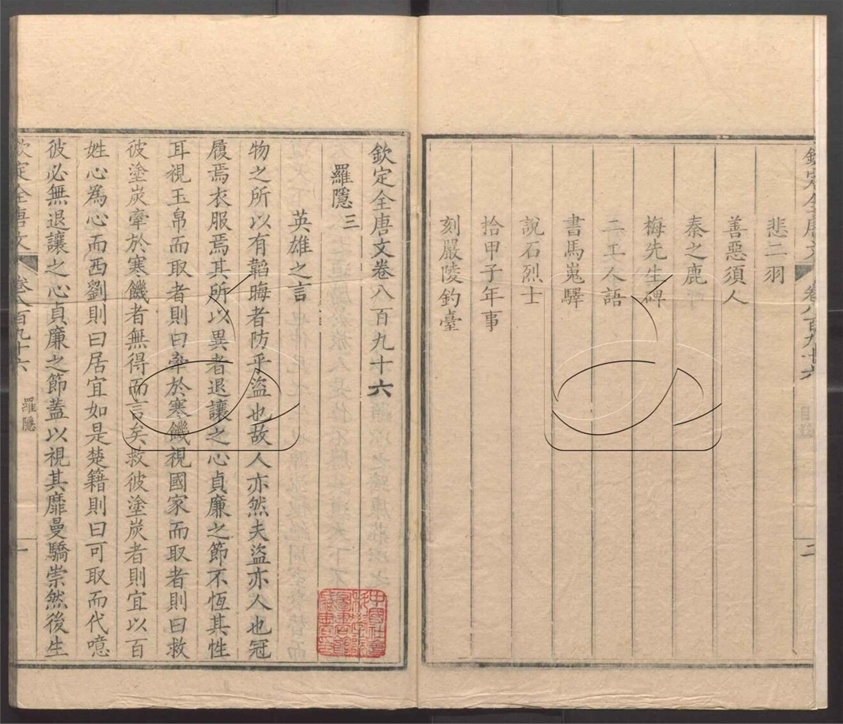 欽定全唐文 卷八百九十六 目錄 二
悲二羽
善惡須人
秦之鹿
梅先生碑
二工人語
書馬嵬驛
說石烈士
拾甲子年事
刻嚴陵釣臺
欽定全唐文卷八百九十六
羅隱三
英雄之言
物之所以有韜晦者防乎盜也故人亦然夫盜亦人也冠
履焉衣服焉其所以異者退讓之心貞廉之節不恆其性
耳視玉帛而取者則曰牽於寒饑視國家而取者則曰救
彼塗炭牽於寒饑者無得而言矣救彼塗炭者則宜以百
姓心為心而西劉則曰居宜如是楚籍則曰可取而代噫
彼必無退讓之心貞廉之節蓋以視其靡曼驕崇然後生
欽定全唐文 卷八百九十六 羅隱 一